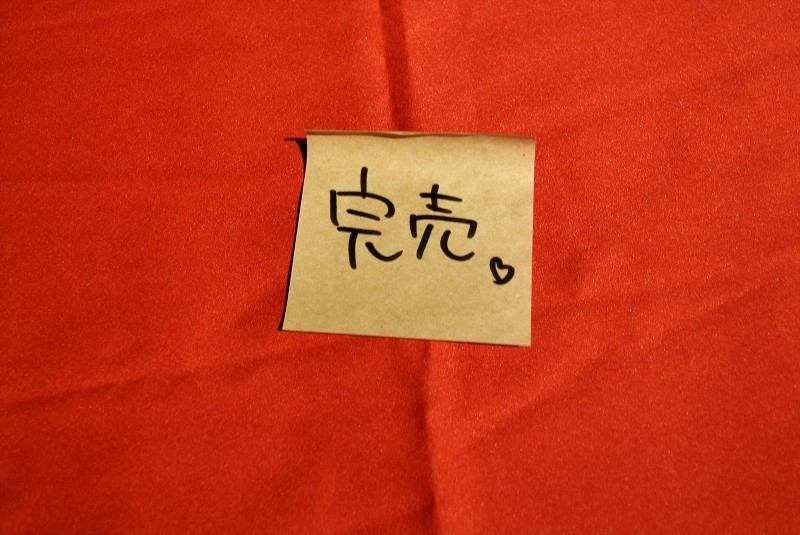 完売♡